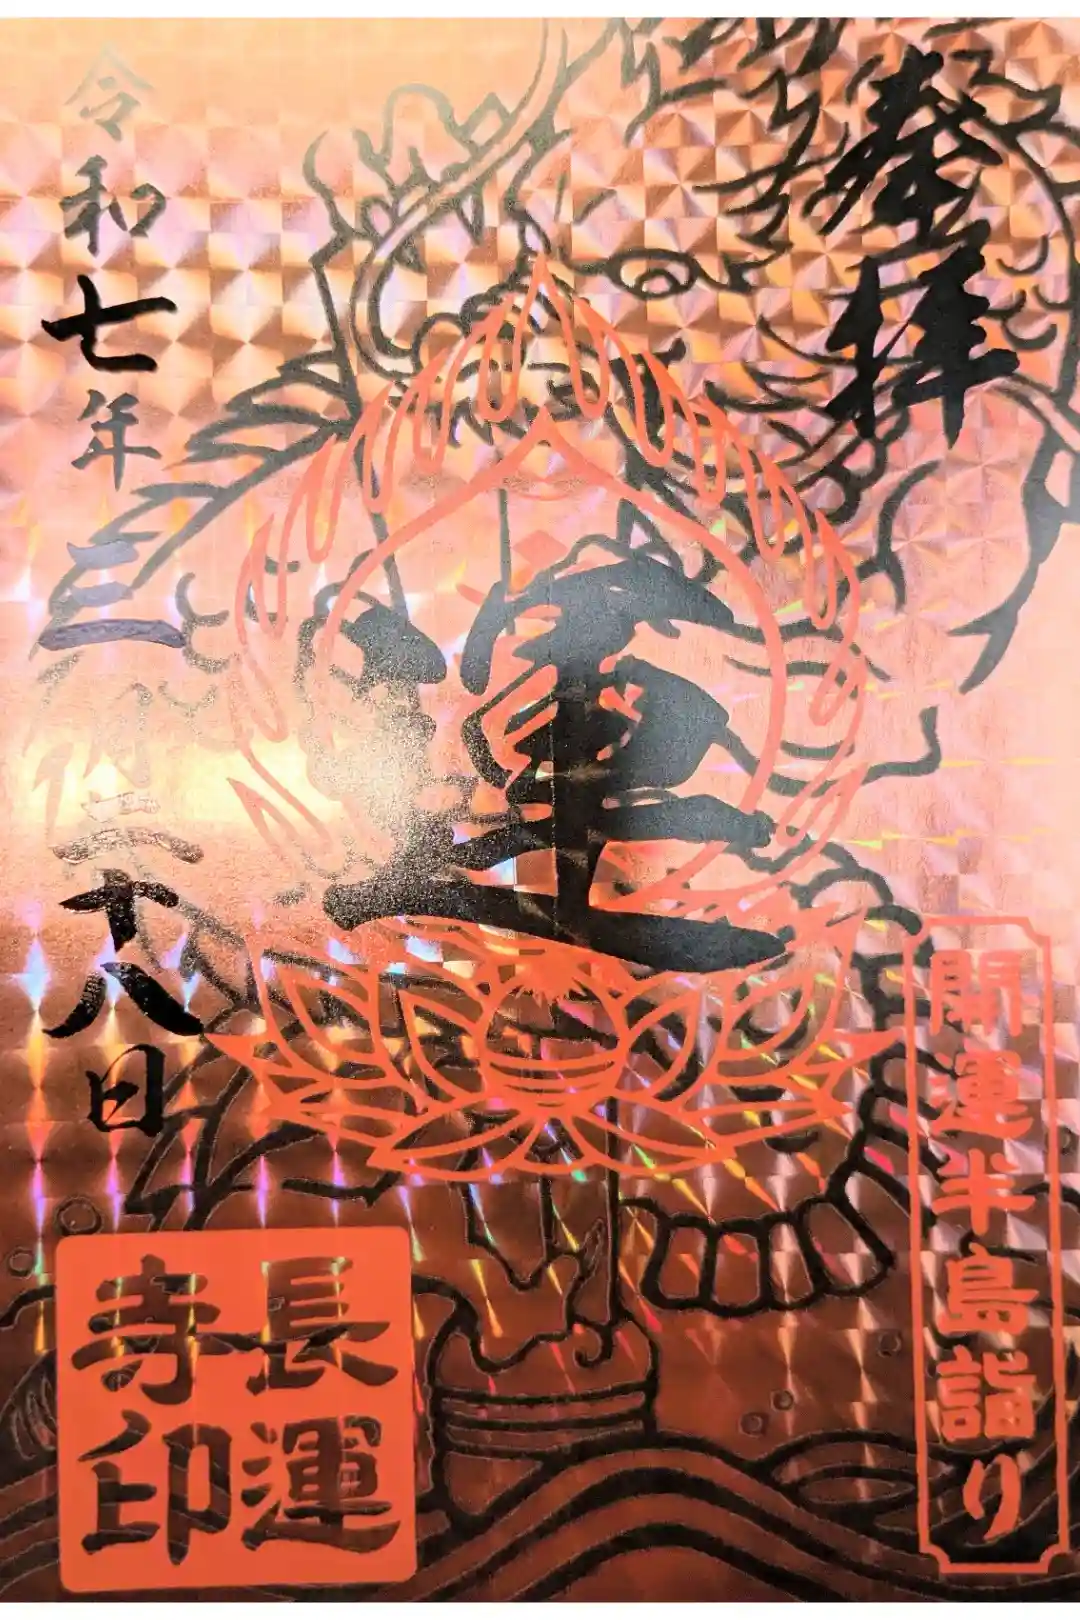 奉拝
開運半島詣り
運
令和七年三月二十八日
長運
寺印